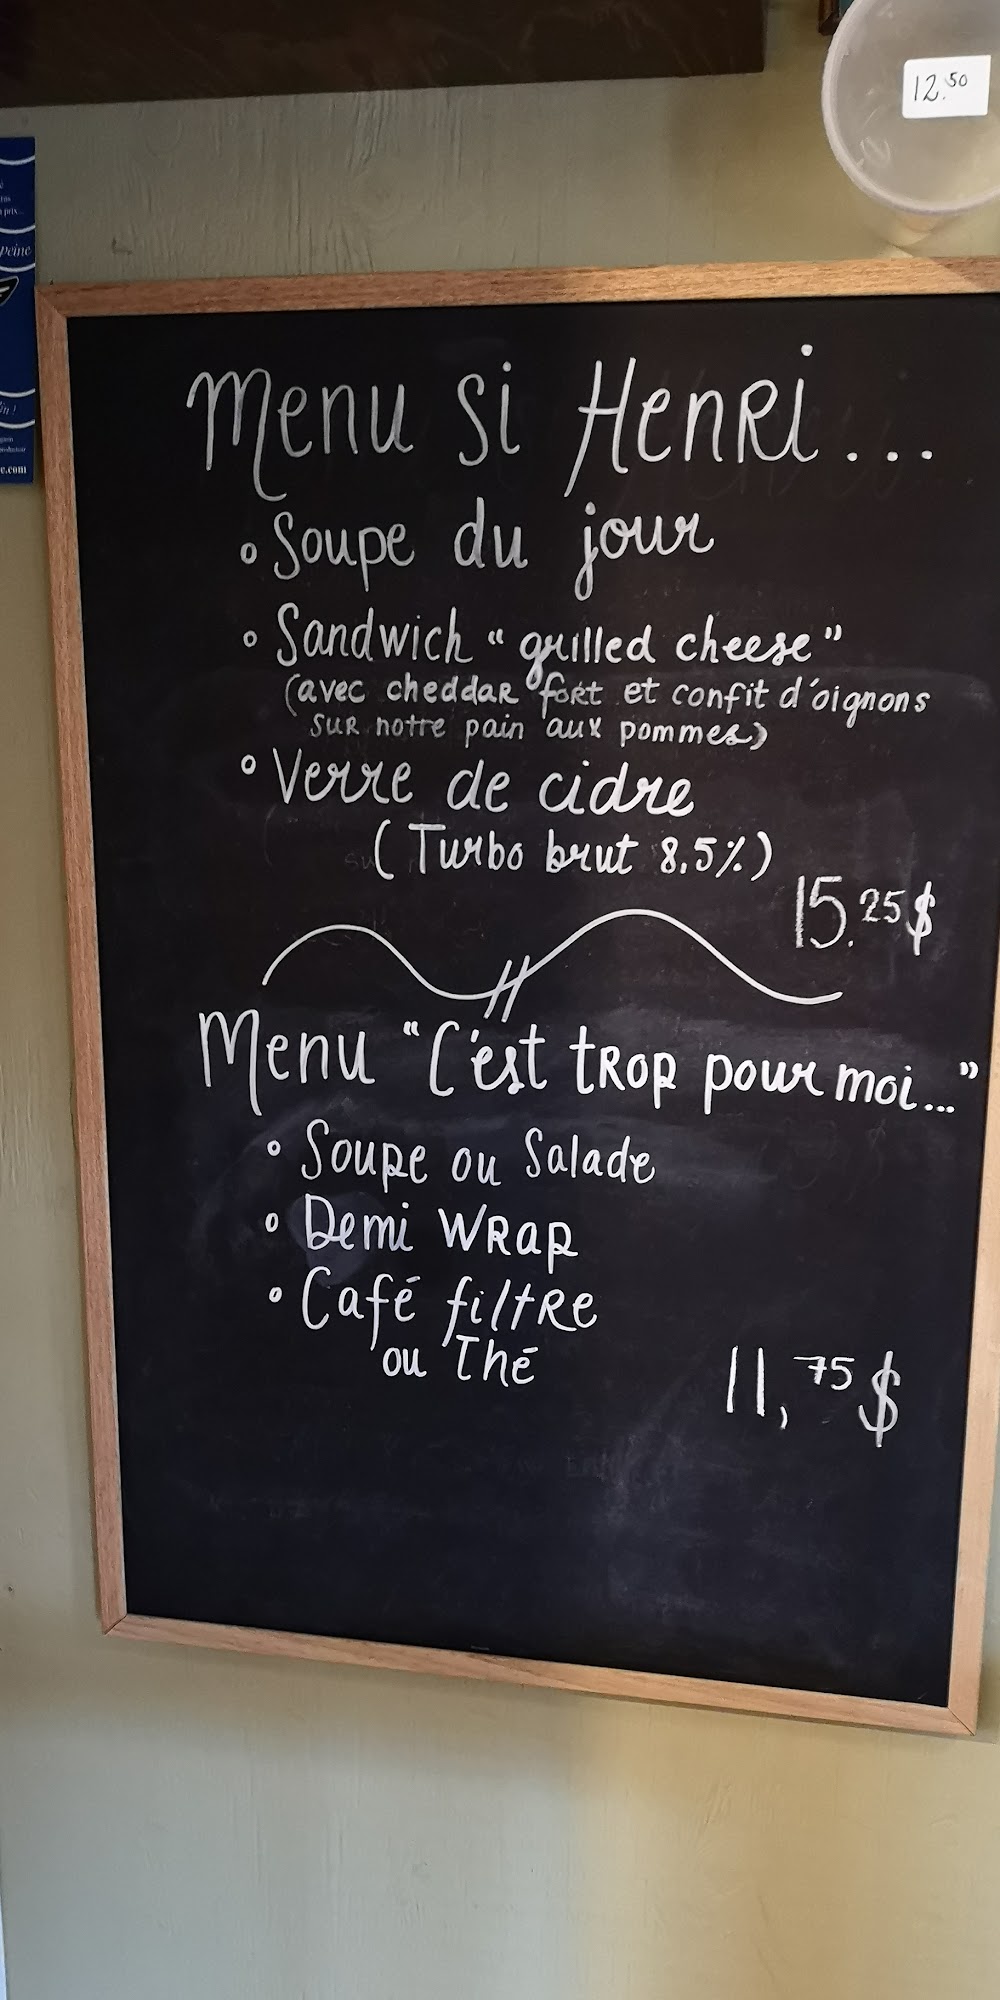 12.50
peine
e.com
Menu si Henri...
Soupe du jour
Sandwich "grilled cheese"
(avec cheddar fort et confit d'oignons
sur notre pain aux pommes)
Verre de cidre
(Turbo brut 8.5%)
15.25$
Menu "C'est trop pour moi..."
Soupe ou Salade
Demi Wrap
Café filtre
ou Thé
11,75$